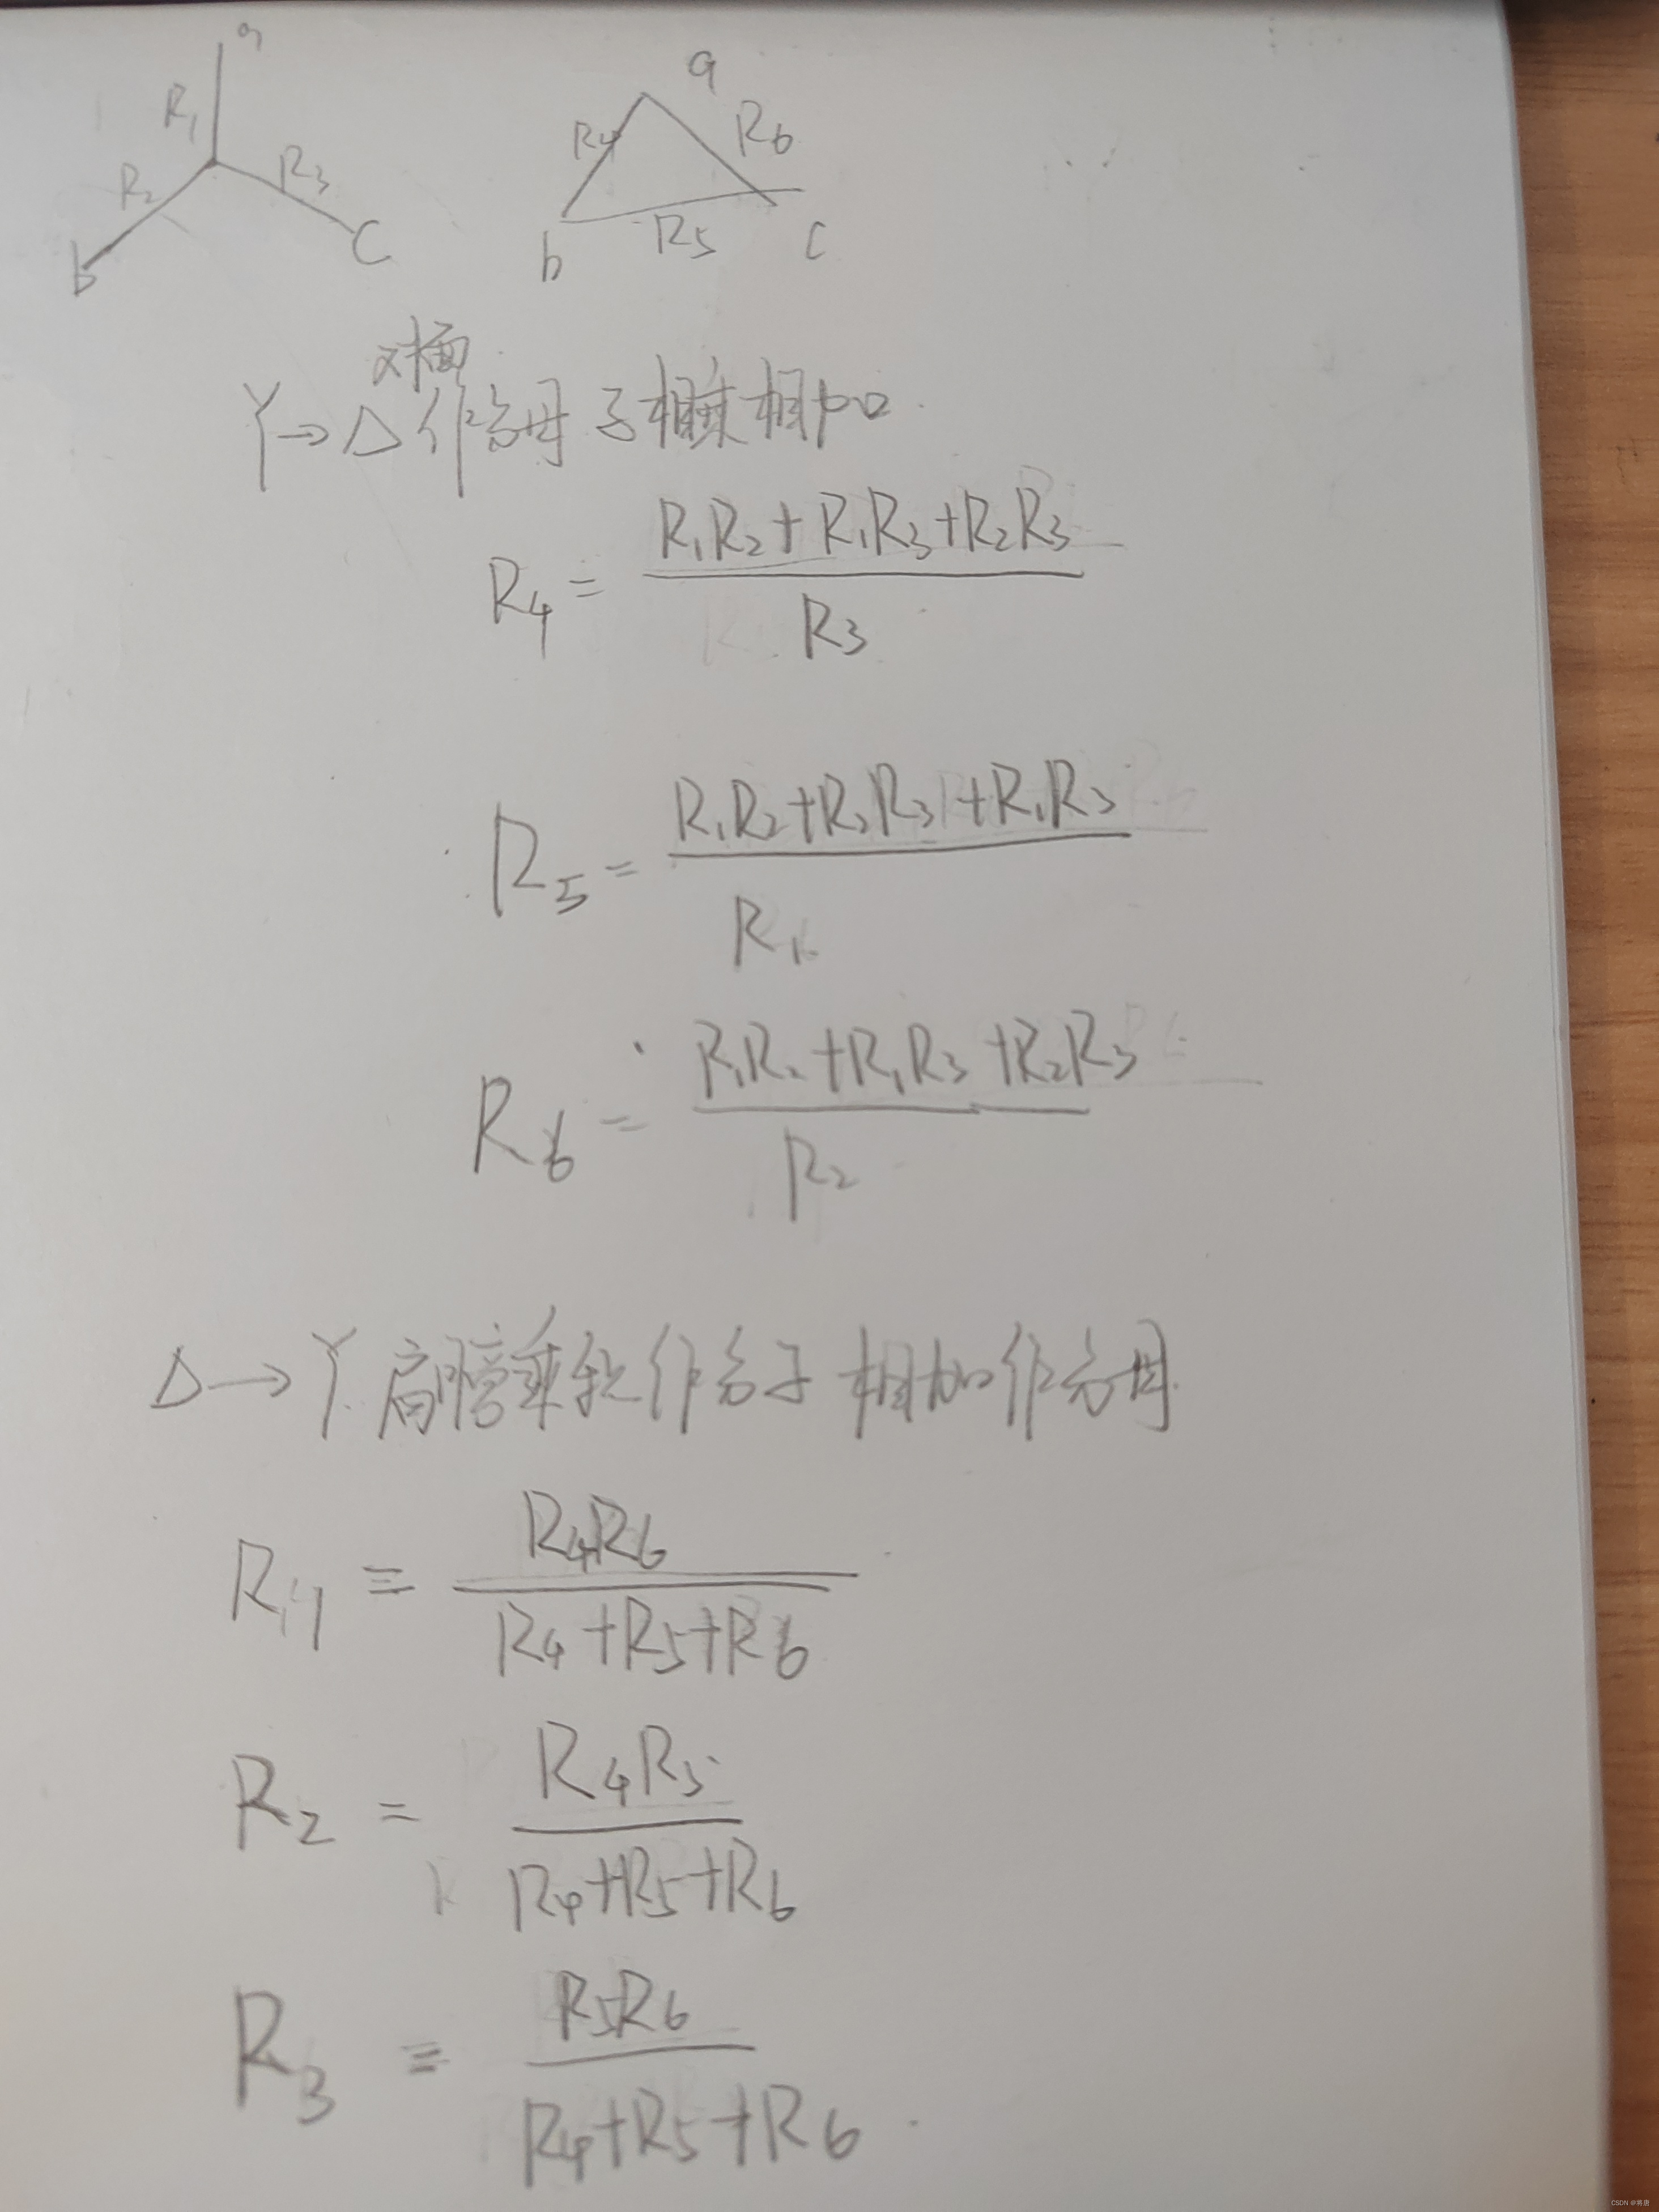 a
R1
R2
R3
b
C
a
R4
R6
b
R5
c
对面
Y→Δ 作分母 子相乘相加
R4 = (R1R2+R1R3+R2R3)/R3
R5 = (R1R2+R2R3+R1R3)/R1
R6 = (R1R2+R1R3+R2R3)/R2
Δ→Y 肩膀乘积作分子 相加作分母
= R4R6/(R4+R5+R6)
R2 = R4R5/(R4+R5+R6)
R3 = R5R6/(R4+R5+R6)
CSDN @蒋唐